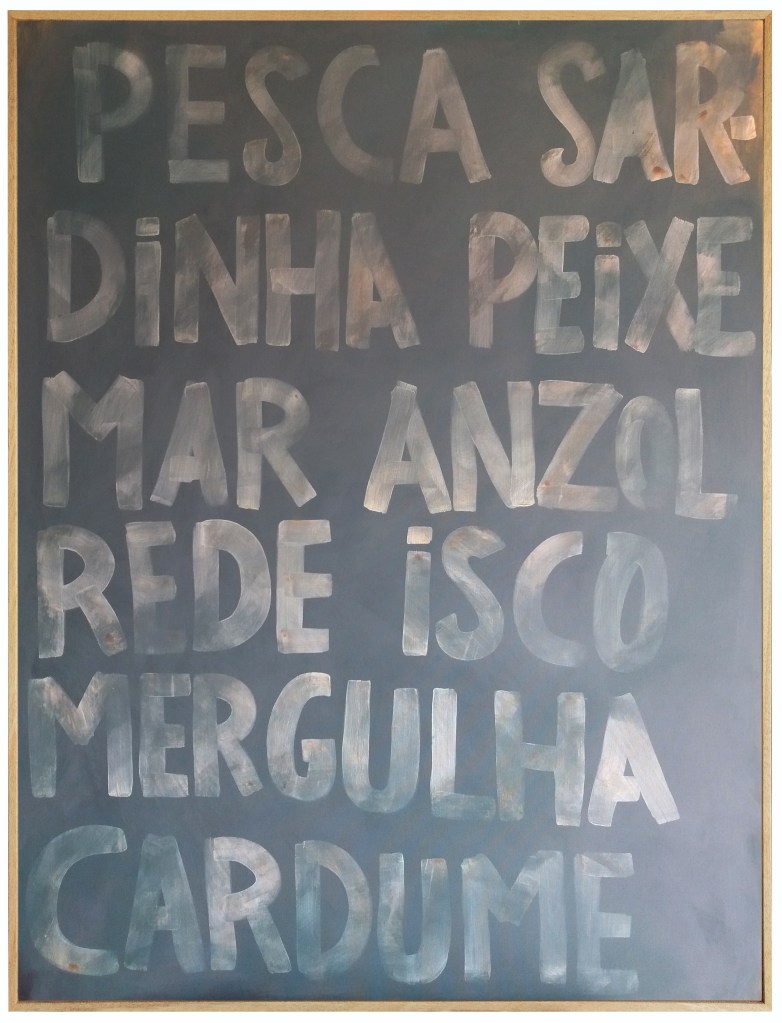 PESCA SAR-
DiNHA PEiXE
MAR ANZOL
REDE iSCO
MERGULHA
CARDUME